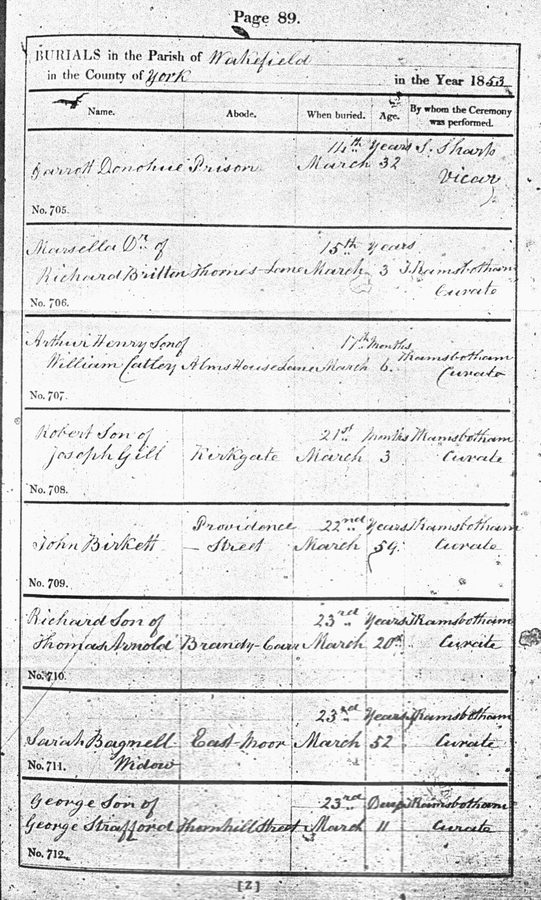 Page 89.
BURIALS in the Parish of Wakefield
in the County of York in the Year 1853
Name. Abode. When buried. Age. By whom the Ceremony was performed.
14th Years S. Sharp
Garrott Donohue Prison March 32 Vicar
No. 705.
Marsella Dr. of 15th Years
Richard Britton Thornes-Lane March 3 T Ramsbotham
Curate
No. 706.
Arthur Henry Son of 17th Months
William Catley Alms House Lane March 6. TRamsbotham
Curate
No. 707.
Robert Son of 21st Months TRamsbotham
Joseph Gill Kirkgate March 3 Curate
No. 708.
Providence 22nd Years TRamsbotham
John Birkett Street March 59. Curate
No. 709.
Richard Son of 23rd Years TRamsbotham
Thomas Arnold Brandy-Carr March 20 Curate
No. 710.
23rd Years TRamsbotham
Sarah Bagnell East-Moor March 52 Curate
No. 711. Widow
George Son of 23rd Days TRamsbotham
George Strafford Thornhill Street March 11 Curate
No. 712.
[Z]